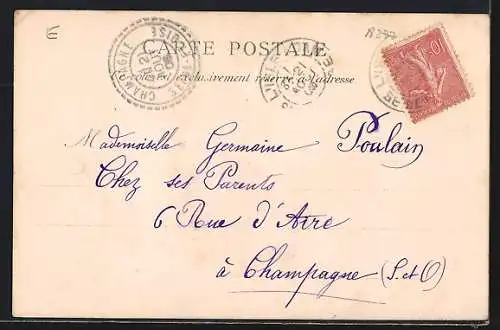 CARTE POSTALE
Ce côté est exclusivement réservé à l'adresse
Mademoiselle Germaine Poulain
Chez ses Parents
6 Rue d'Aire
à Champagne (S. et O)